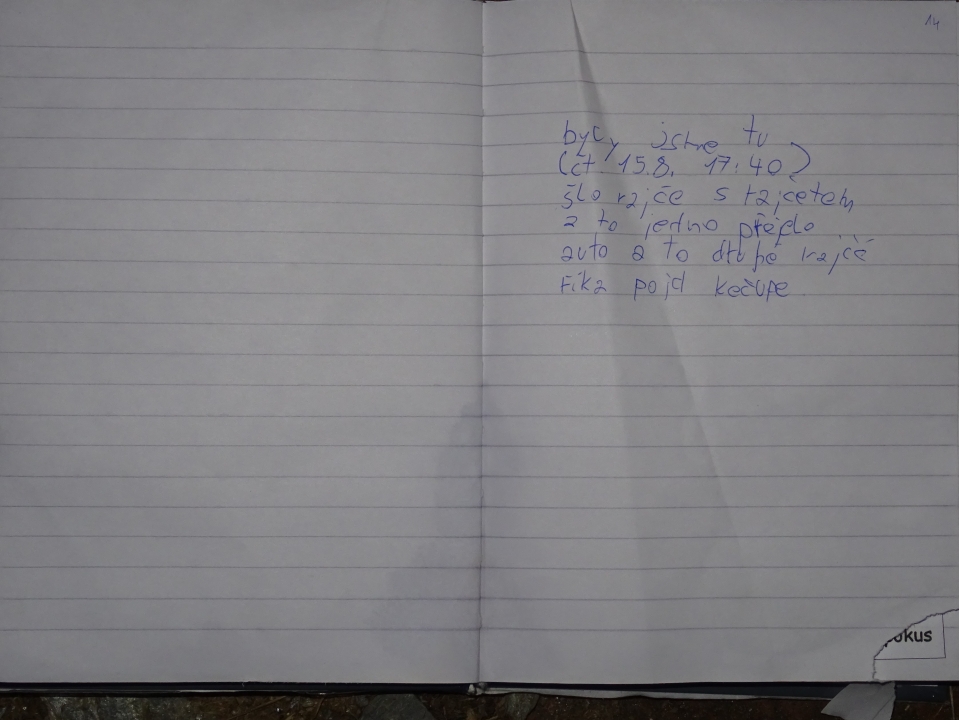 14
byly jsme tu
(čt. 15.8. 17:40)
šlo rajče s rajčetem
a to jedno přejelo
auto a to druhé rajče
říka pojd kečupe
okus